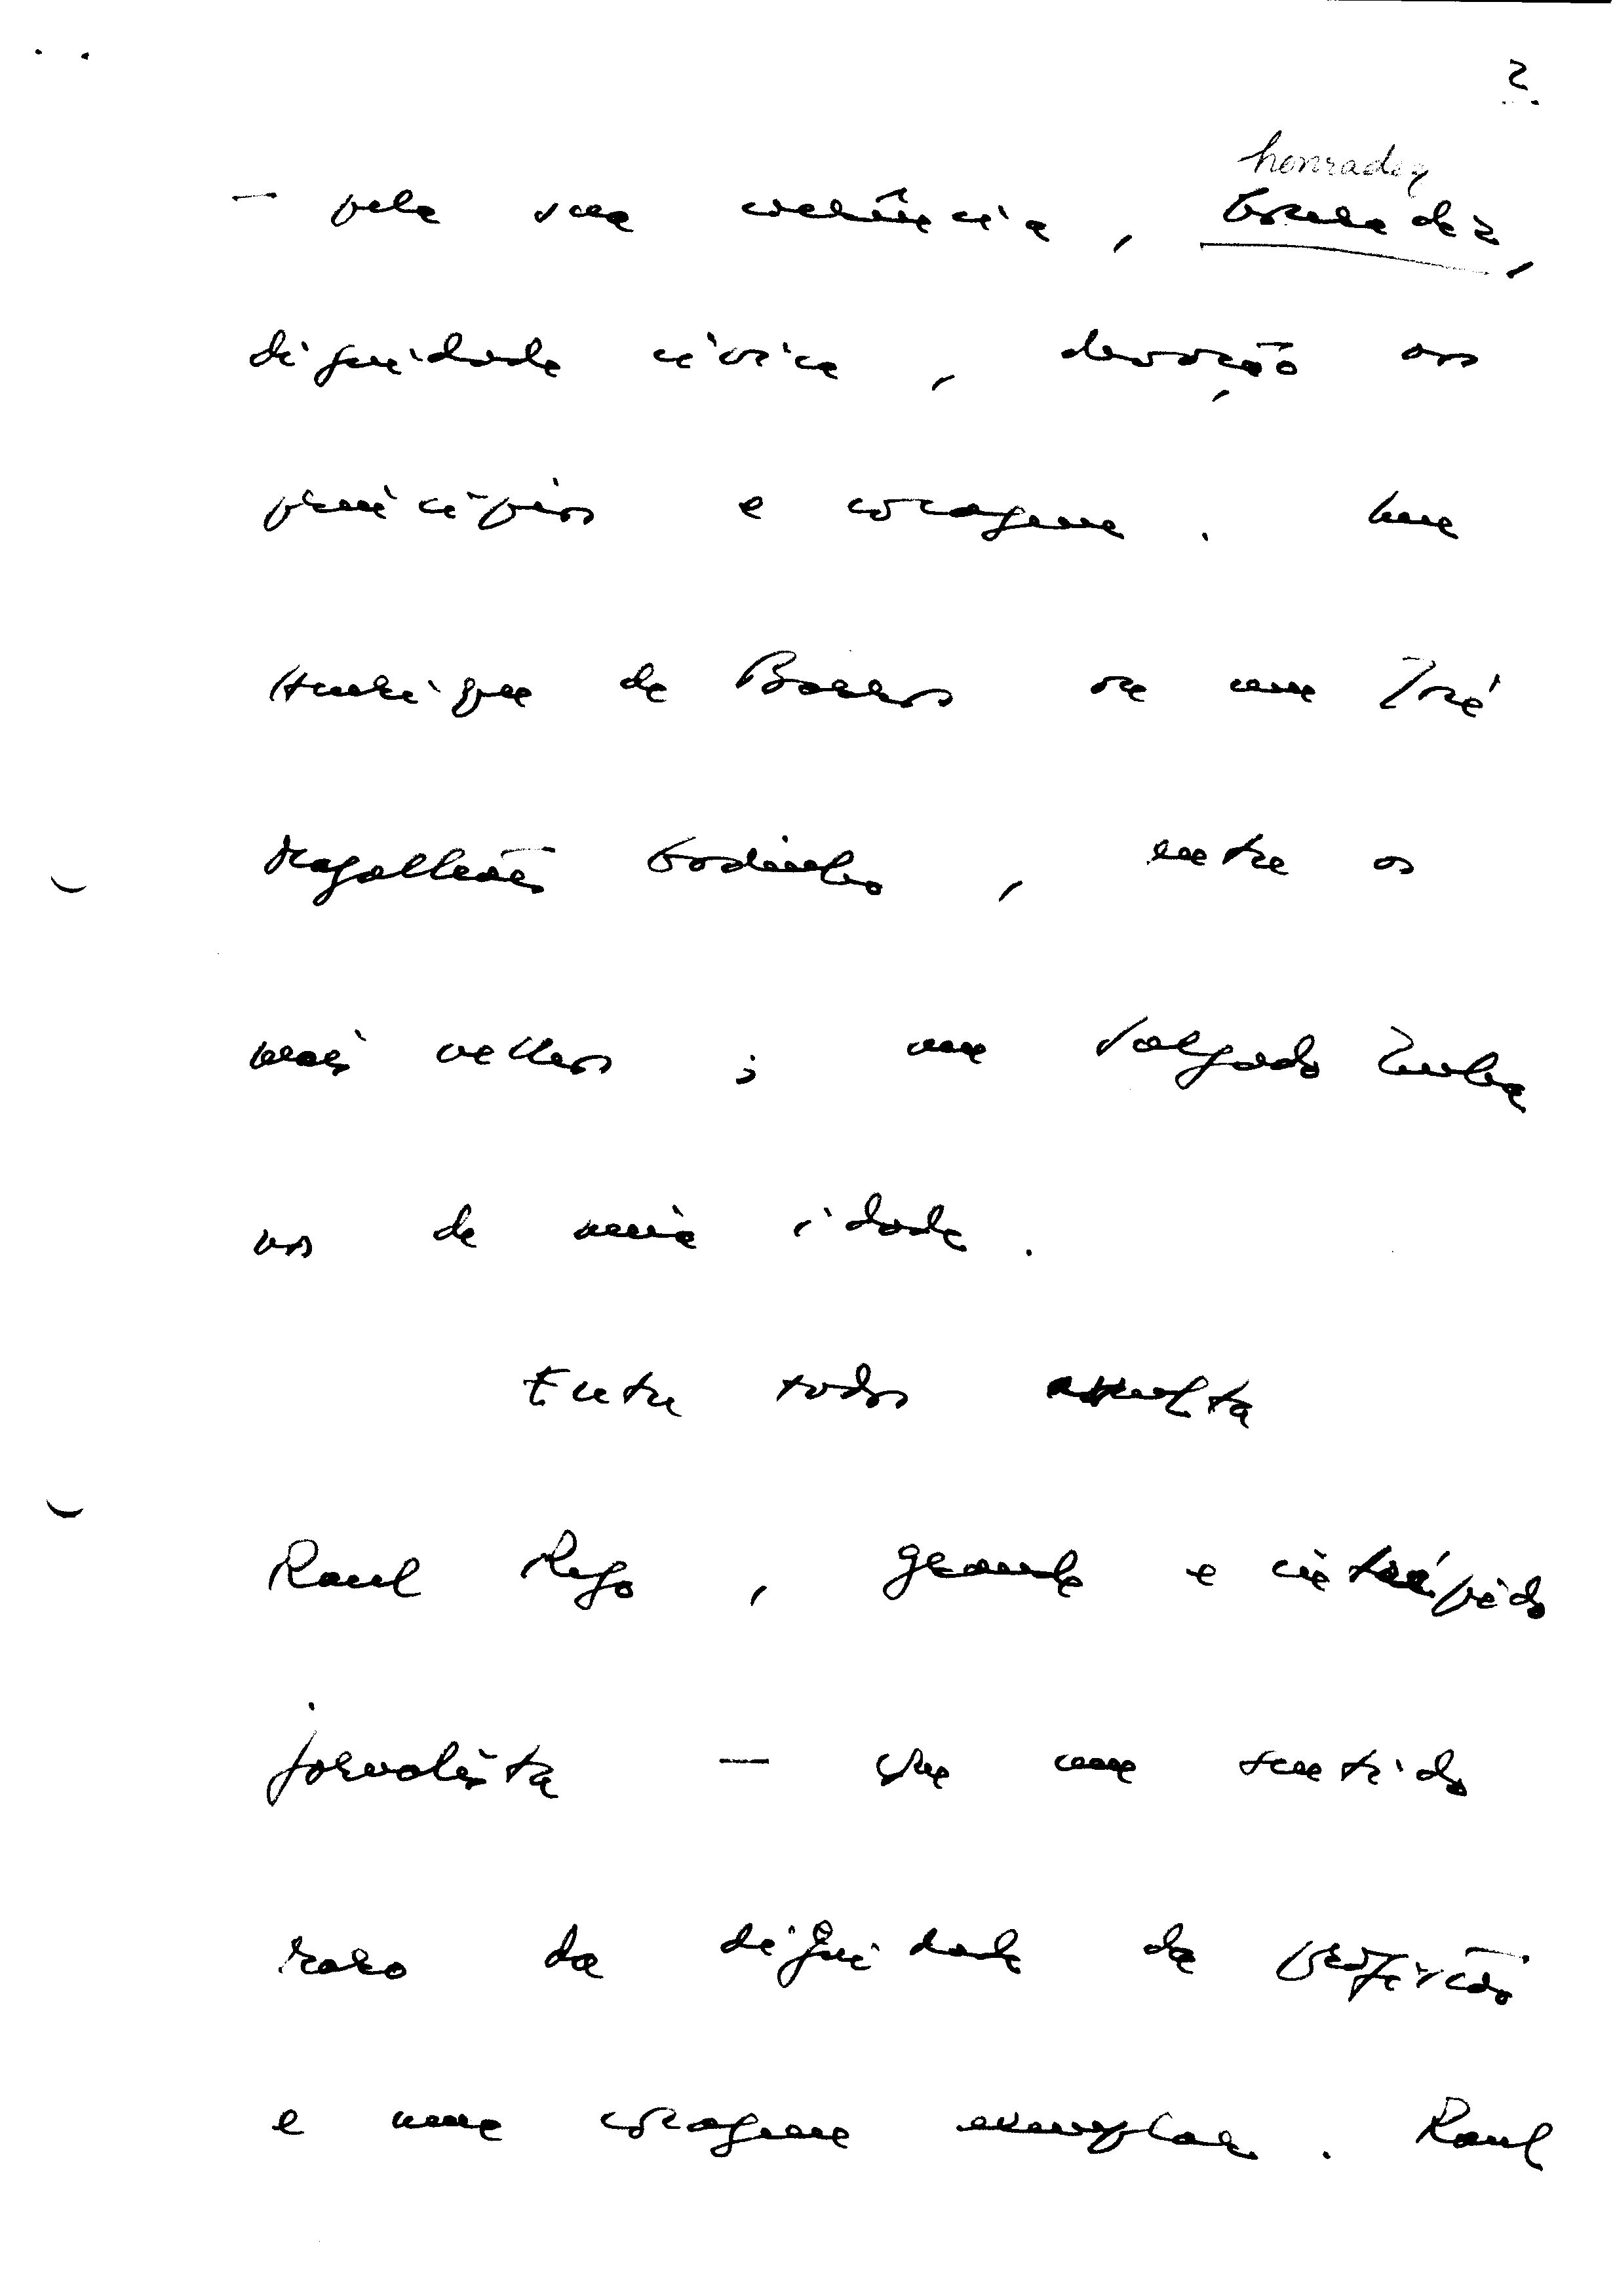 2.
honradez
— pela sua coerência, honradez,
dignidade cívica, devoção aos
princípios e coragem. Um
Henrique de Barros ou um José
Magalhães Godinho, entre os
mais velhos; um Salgado Zenha
nos de meia idade.
Entre todos avulta
Raul Rego, grande e intrépido
jornalista — que um sentido
raro da dignidade da profissão
e uma coragem exemplar. Raul